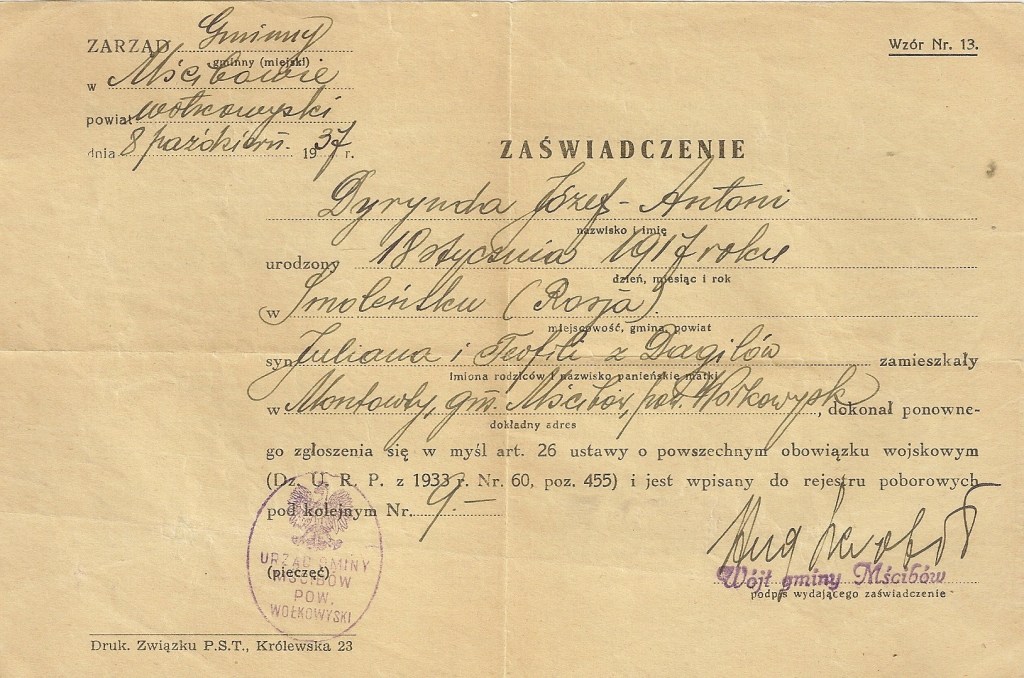 ZARZĄD Gminny
gminny (miejski)
w Mścibowie
powiat wołkowyski
dnia 8 październ. 1937 r.
Wzór Nr. 13.
ZAŚWIADCZENIE
Dyrynda Józef-Antoni
nazwisko i imię
urodzony 18 stycznia 1917 roku
dzień, miesiąc i rok
w Smoleńsku (Rosja)
miejscowość, gmina, powiat
syn Juljana i Teofili z Dagilów zamieszkały
Imiona rodziców i nazwisko panieńskie matki
w Montowty, gm. Mścibów, pow. Wołkowysk, dokonał ponowne-
dokładny adres
go zgłoszenia się w myśl art. 26 ustawy o powszechnym obowiązku wojskowym
(Dz. U. R. P. z 1933 r. Nr. 60, poz. 455) i jest wpisany do rejestru poborowych
pod kolejnym Nr. 9.—
URZĄD GMINY
(pieczęć)
MŚCIBÓW
POW.
WOŁKOWYSKI
Wójt gminy Mścibów
podpis wydającego zaświadczenie
Druk. Związku P.S.T., Królewska 23